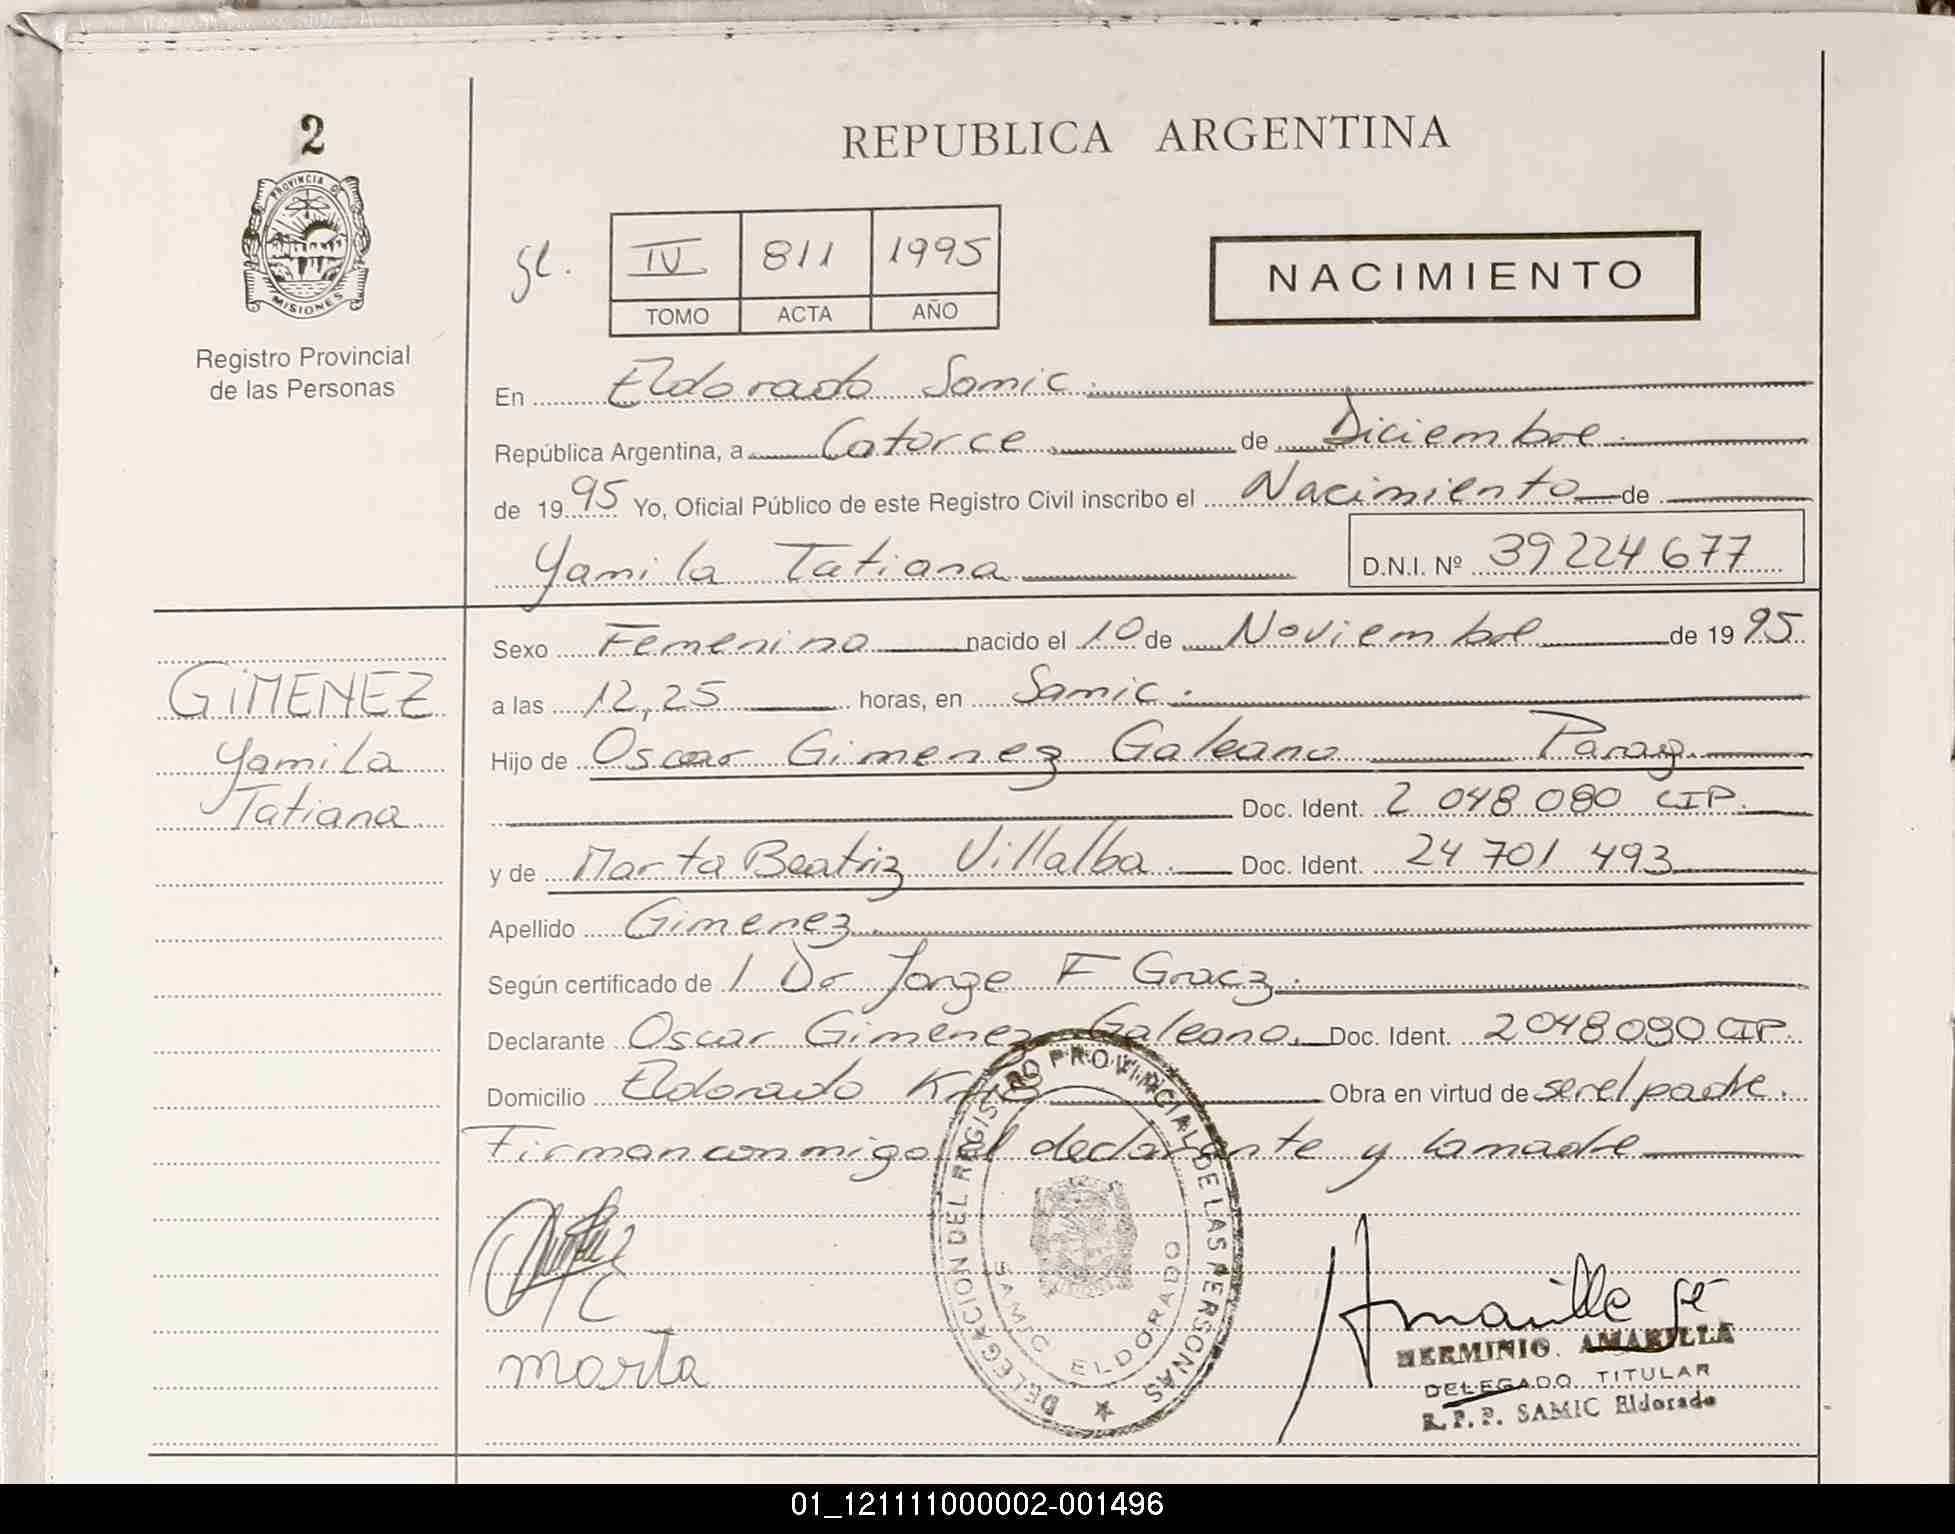 2
PROVINCIA DE
MISIONES
Registro Provincial
de las Personas
REPUBLICA ARGENTINA
IV 811 1995
TOMO ACTA AÑO
NACIMIENTO
En Eldorado Samic.
República Argentina, a Catorce de Diciembre
de 1995 Yo, Oficial Público de este Registro Civil inscribo el Nacimiento de
Yamila Tatiana D.N.I. Nº 39224677
Sexo Femenino nacido el 10 de Noviembre de 1995
GIMENEZ
Yamila
Tatiana
a las 12,25 horas, en Samic.
Hijo de Oscar Gimenez Galeano Parag.
Doc. Ident. 2 048 080 CIP.
y de Marta Beatriz Villalba. Doc. Ident. 24 701 493
Apellido Gimenez
Según certificado de 1 Dr Jorge F Gracz.
Declarante Oscar Gimenez Galeano. Doc. Ident. 2048080 CIP.
Domicilio Eldorado Obra en virtud de ser el padre.
Firman conmigo el declarante y la madre
DELEGACION DEL REGISTRO PROVINCIAL DE LAS PERSONAS
SAMIC ELDORADO
marta
HERMINIO AMARILLA
DELEGADO TITULAR
R.P.P. SAMIC Eldorado
01_121111000002-001496